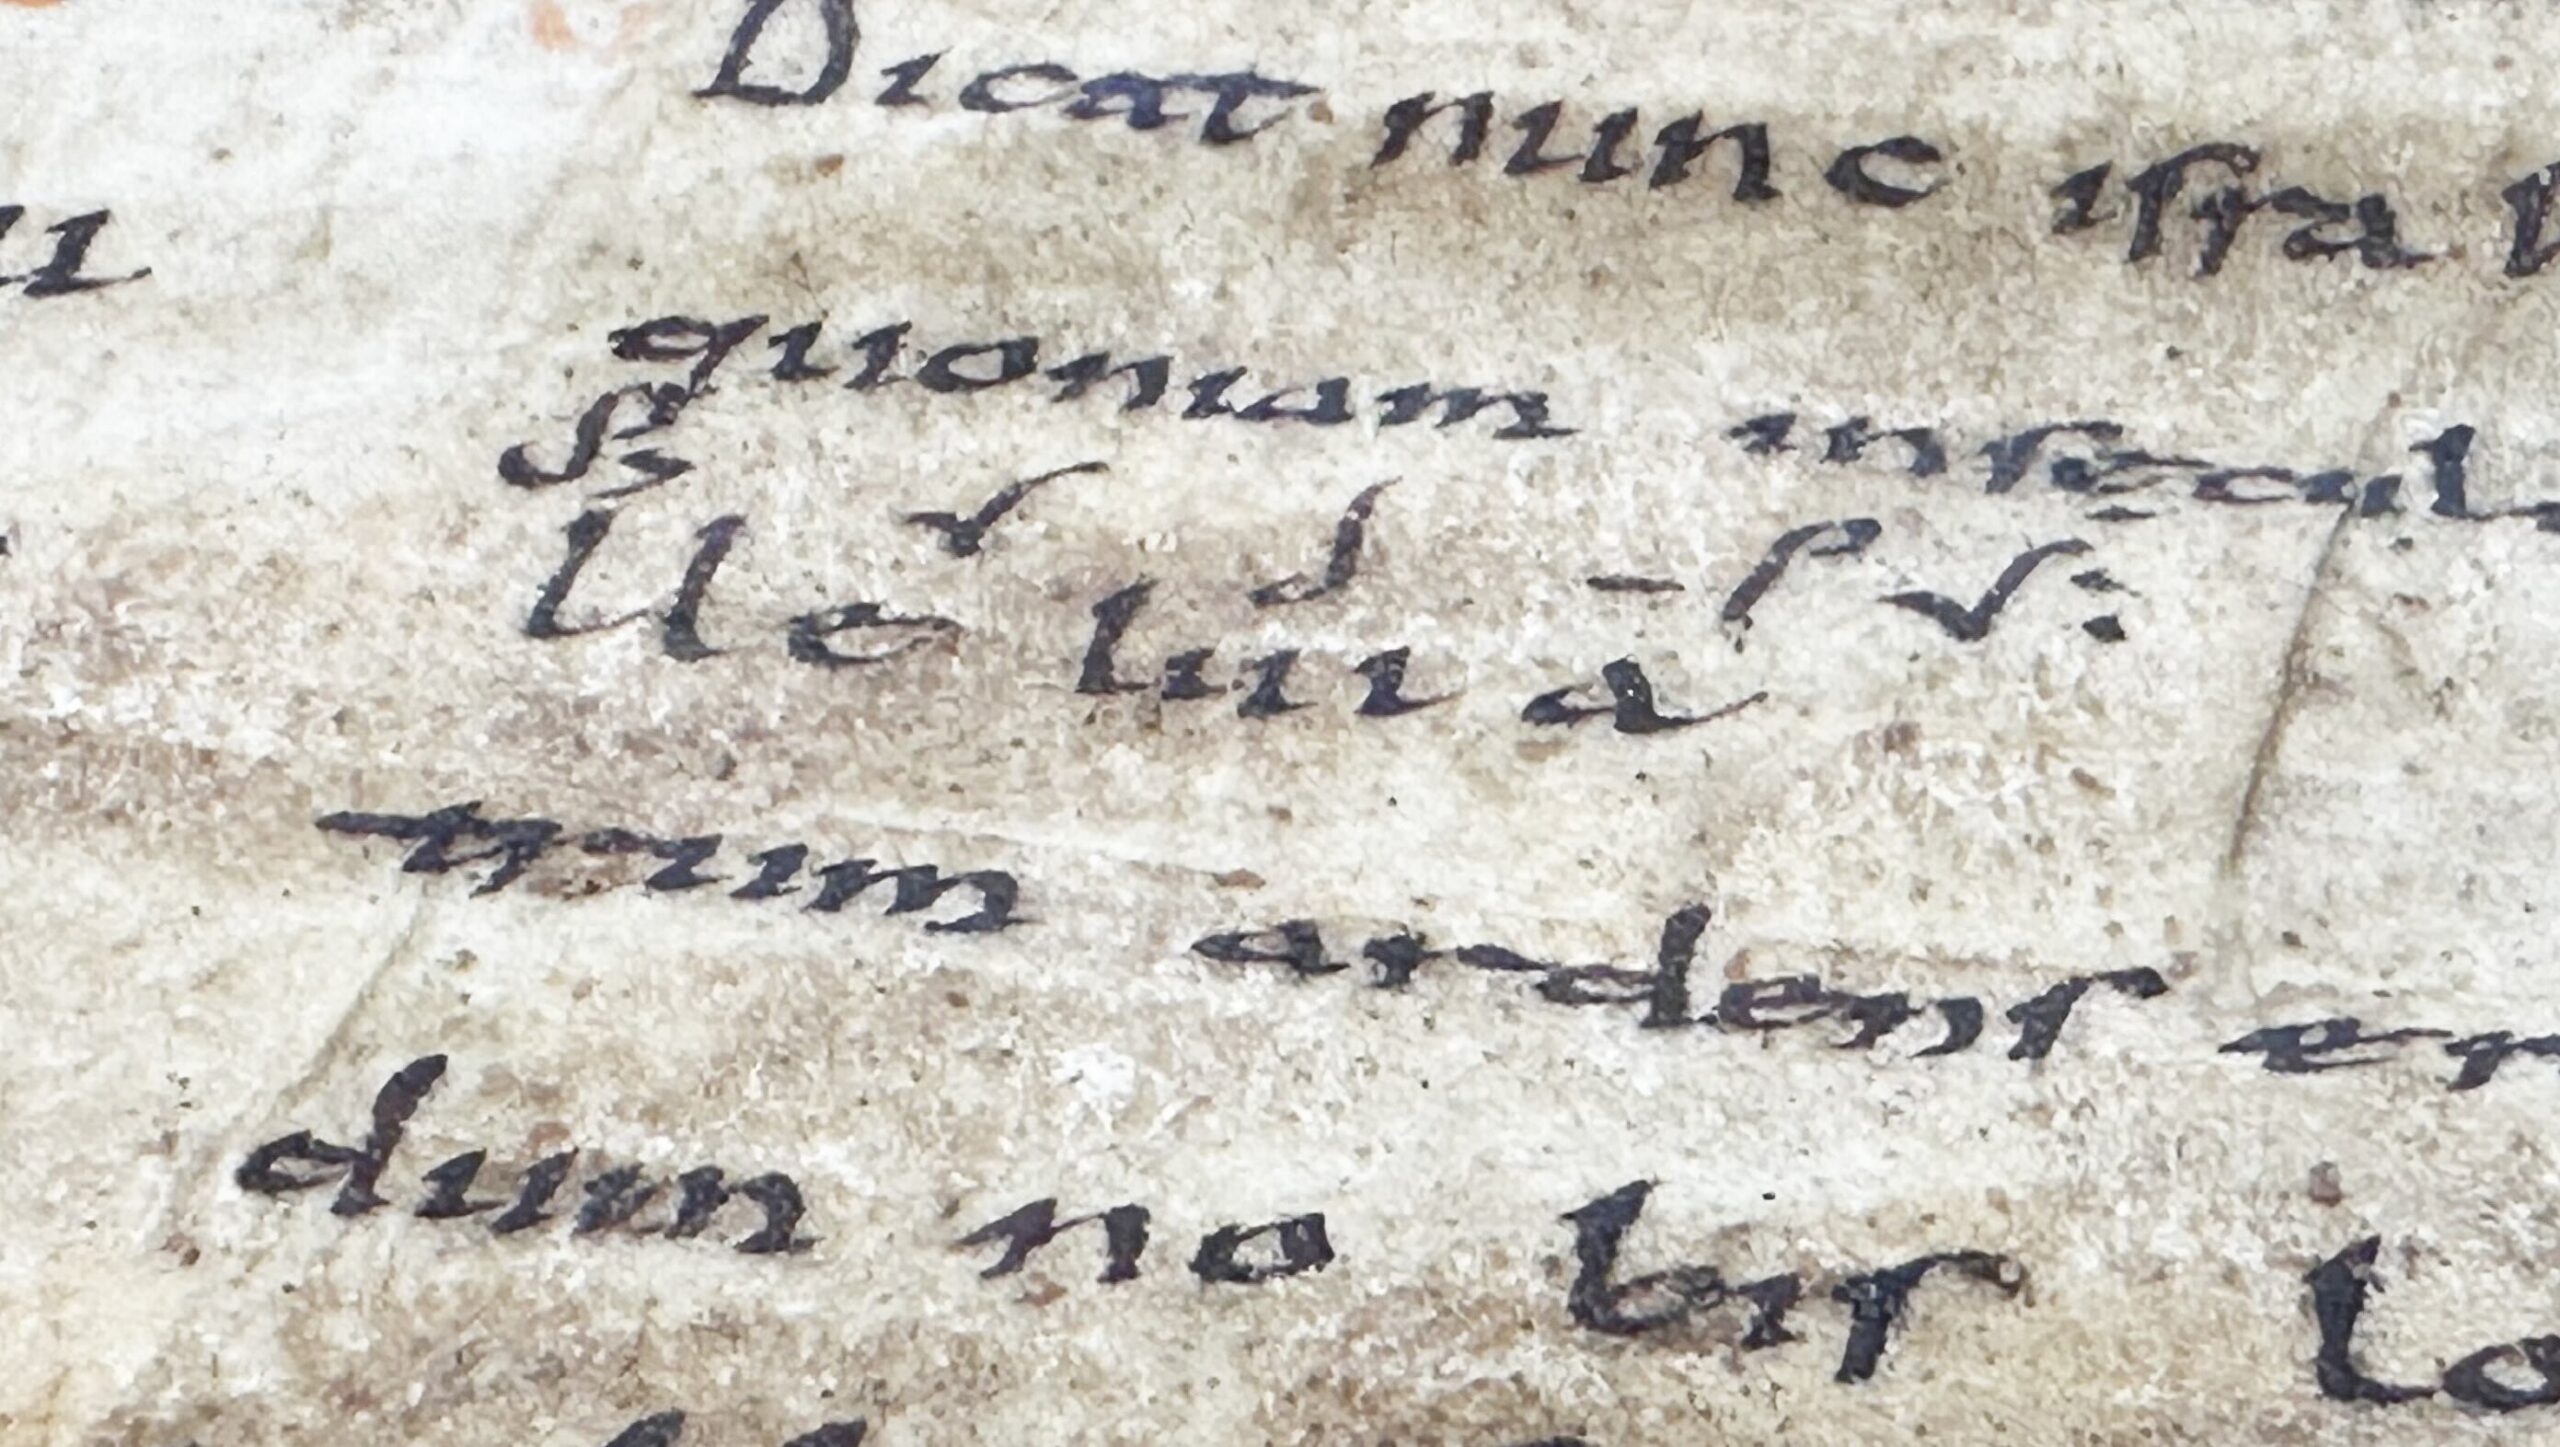 Dicat nunc isra
quoniam insęcul
lleluia
trum ardens
dum nobis lo